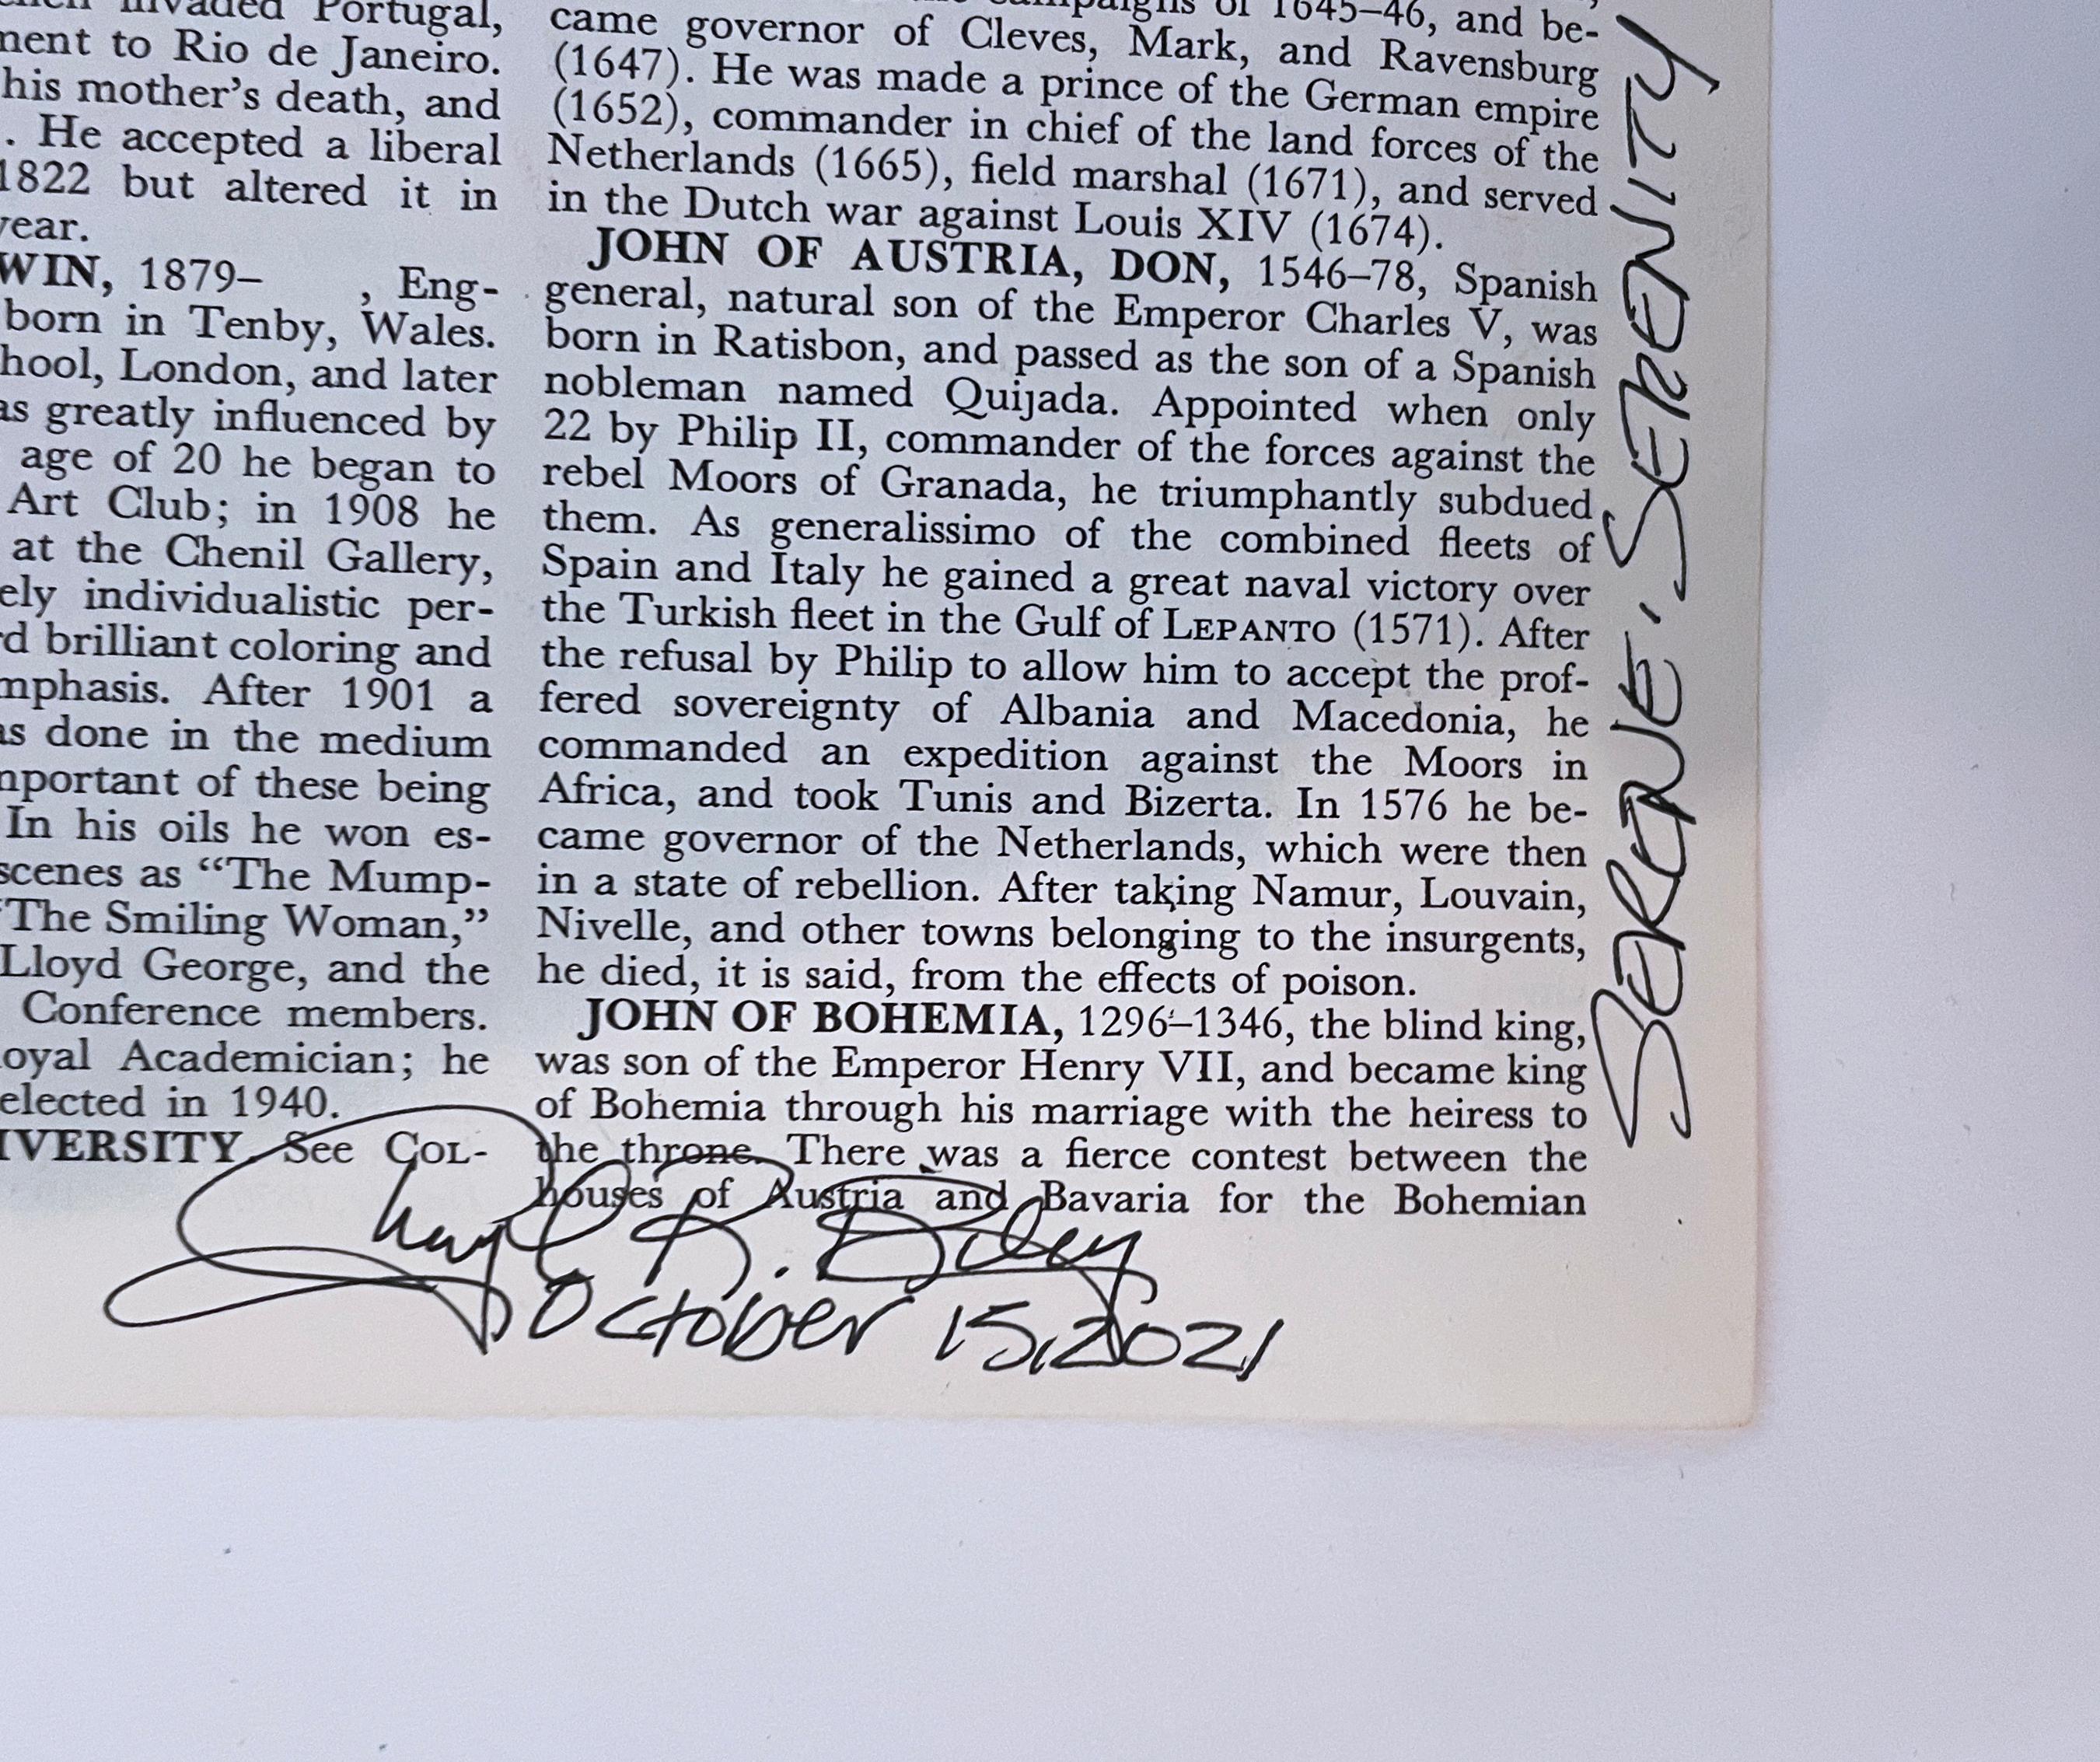 invaded Portugal,
ment to Rio de Janeiro.
his mother's death, and
. He accepted a liberal
1822 but altered it in
year.
WIN, 1879– , Eng-
born in Tenby, Wales.
hool, London, and later
as greatly influenced by
age of 20 he began to
Art Club; in 1908 he
at the Chenil Gallery,
ely individualistic per-
rd brilliant coloring and
mphasis. After 1901 a
as done in the medium
mportant of these being
In his oils he won es-
scenes as “The Mump-
“The Smiling Woman,”
Lloyd George, and the
Conference members.
oyal Academician; he
elected in 1940.
IVERSITY. See COL-
campaigns of 1645–46, and be-
came governor of Cleves, Mark, and Ravensburg
(1647). He was made a prince of the German empire
(1652), commander in chief of the land forces of the
Netherlands (1665), field marshal (1671), and served
in the Dutch war against Louis XIV (1674).
JOHN OF AUSTRIA, DON, 1546–78, Spanish
general, natural son of the Emperor Charles V, was
born in Ratisbon, and passed as the son of a Spanish
nobleman named Quijada. Appointed when only
22 by Philip II, commander of the forces against the
rebel Moors of Granada, he triumphantly subdued
them. As generalissimo of the combined fleets of
Spain and Italy he gained a great naval victory over
the Turkish fleet in the Gulf of LEPANTO (1571). After
the refusal by Philip to allow him to accept the prof-
fered sovereignty of Albania and Macedonia, he
commanded an expedition against the Moors in
Africa, and took Tunis and Bizerta. In 1576 he be-
came governor of the Netherlands, which were then
in a state of rebellion. After taking Namur, Louvain,
Nivelle, and other towns belonging to the insurgents,
he died, it is said, from the effects of poison.
JOHN OF BOHEMIA, 1296–1346, the blind king,
was son of the Emperor Henry VII, and became king
of Bohemia through his marriage with the heiress to
the throne. There was a fierce contest between the
houses of Austria and Bavaria for the Bohemian
Cheryl R.
October 15, 2021
SERENE. SERENITY